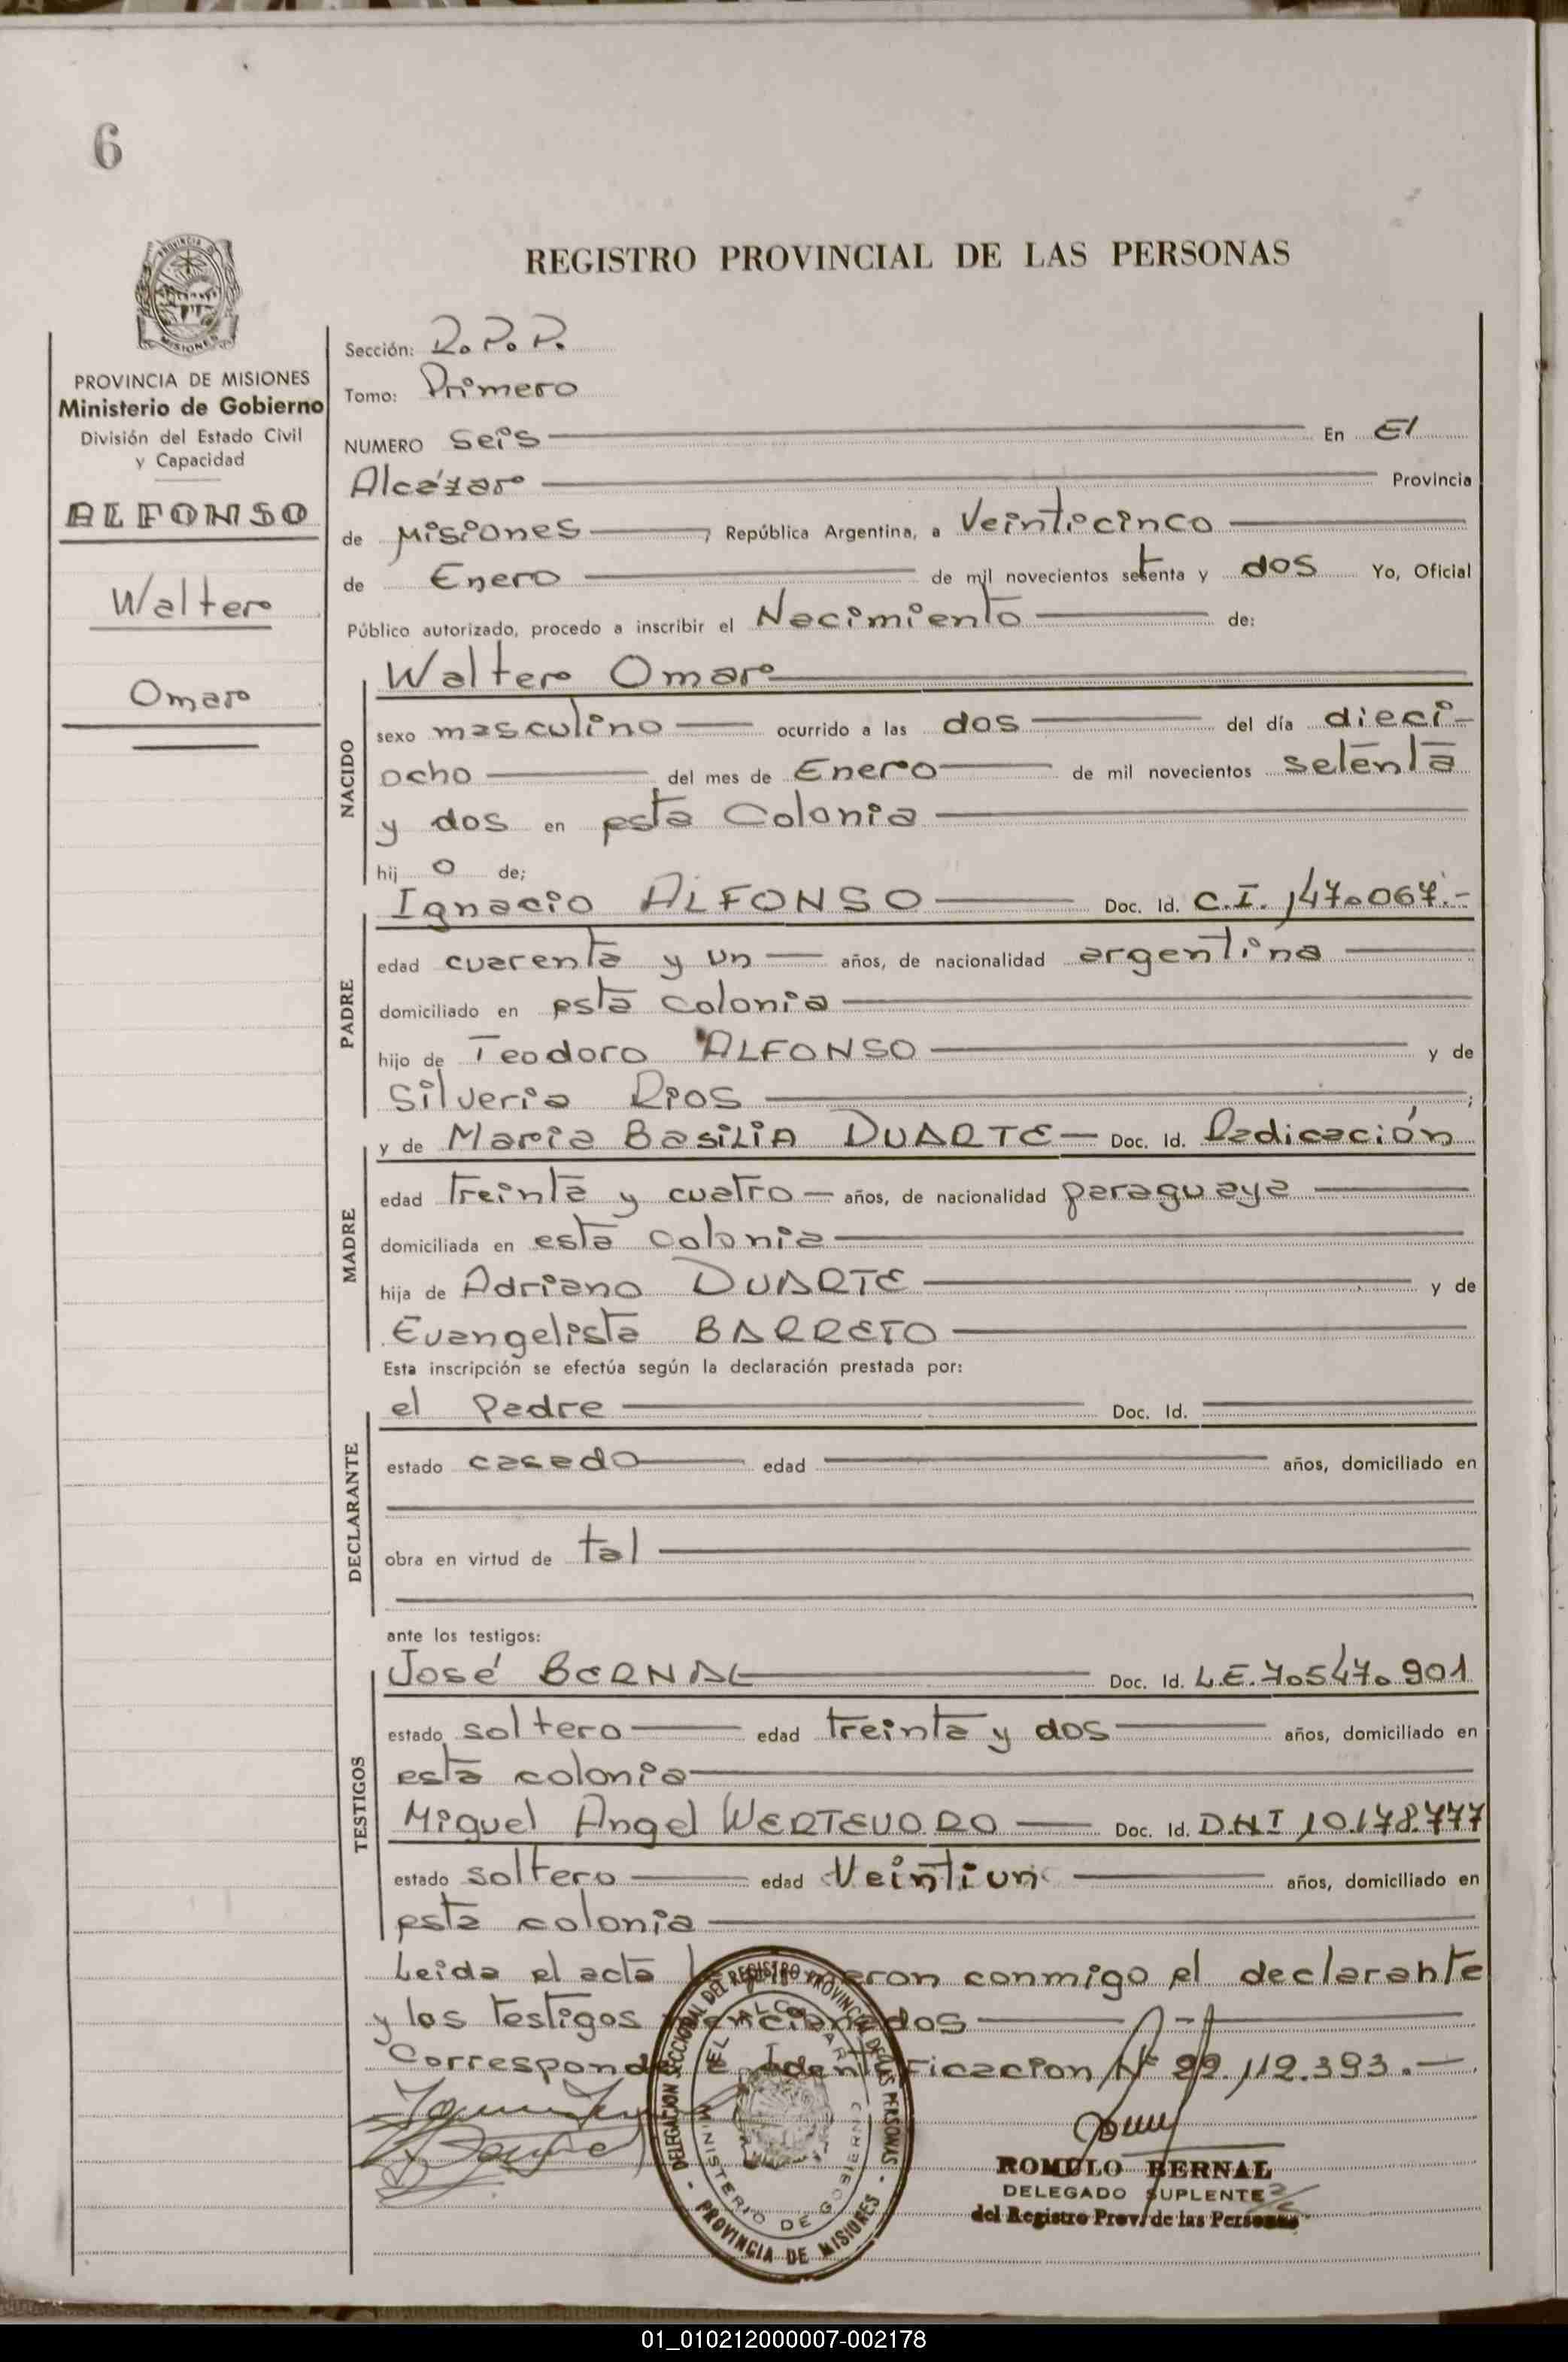 6
REGISTRO PROVINCIAL DE LAS PERSONAS
PROVINCIA DE MISIONES
Ministerio de Gobierno
División del Estado Civil
y Capacidad
ALFONSO
Walter
Omar
Sección: R.P.P.
Tomo: Primero
NUMERO Seis En El
Alcázar Provincia
de Misiones, República Argentina, a Veinticinco
de Enero de mil novecientos setenta y dos Yo, Oficial
Público autorizado, procedo a inscribir el Nacimiento de:
NACIDO
Walter Omar
sexo masculino ocurrido a las dos del día dieci-
ocho del mes de Enero de mil novecientos setenta
y dos en esta Colonia
hij o de;
PADRE
Ignacio ALFONSO Doc. Id. C.I. 147.067.-
edad cuarenta y un años, de nacionalidad argentina
domiciliado en esta colonia
hijo de Teodoro ALFONSO y de
Silveria Rios ;
MADRE
y de Maria BasiLiA DUARTE Doc. Id. Radicación
edad treinta y cuatro años, de nacionalidad paraguaya
domiciliada en esta colonia
hija de Adriano DUARTE y de
Evangelista BARRETO
Esta inscripción se efectúa según la declaración prestada por:
DECLARANTE
el padre Doc. Id.
estado casado edad años, domiciliado en
obra en virtud de tal
ante los testigos:
TESTIGOS
José BERNAL Doc. Id. L.E. 7.547.901
estado soltero edad treinta y dos años, domiciliado en
esta colonia
Miguel Angel Doc. Id. D.N.I 10.178.777
estado soltero edad Veintiun años, domiciliado en
esta colonia
Leida el acta conmigo el declarante
y los testigos mencionados
Corresponde identificacion Nº 22.112.393.-
DELEGACION SECCIONAL DEL REGISTRO PROVINCIAL DE LAS PERSONAS
EL ALCAZAR
MINISTERIO DE GOBIERNO
- PROVINCIA DE MISIONES -
ROMULO BERNAL
DELEGADO SUPLENTE
del Registro Prov. de las Personas
01_010212000007-002178